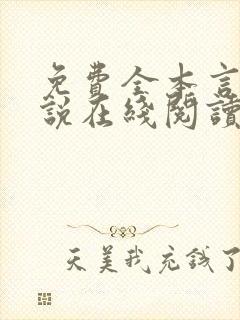 免費全本言
說在綫閱讀
天美我充錢了